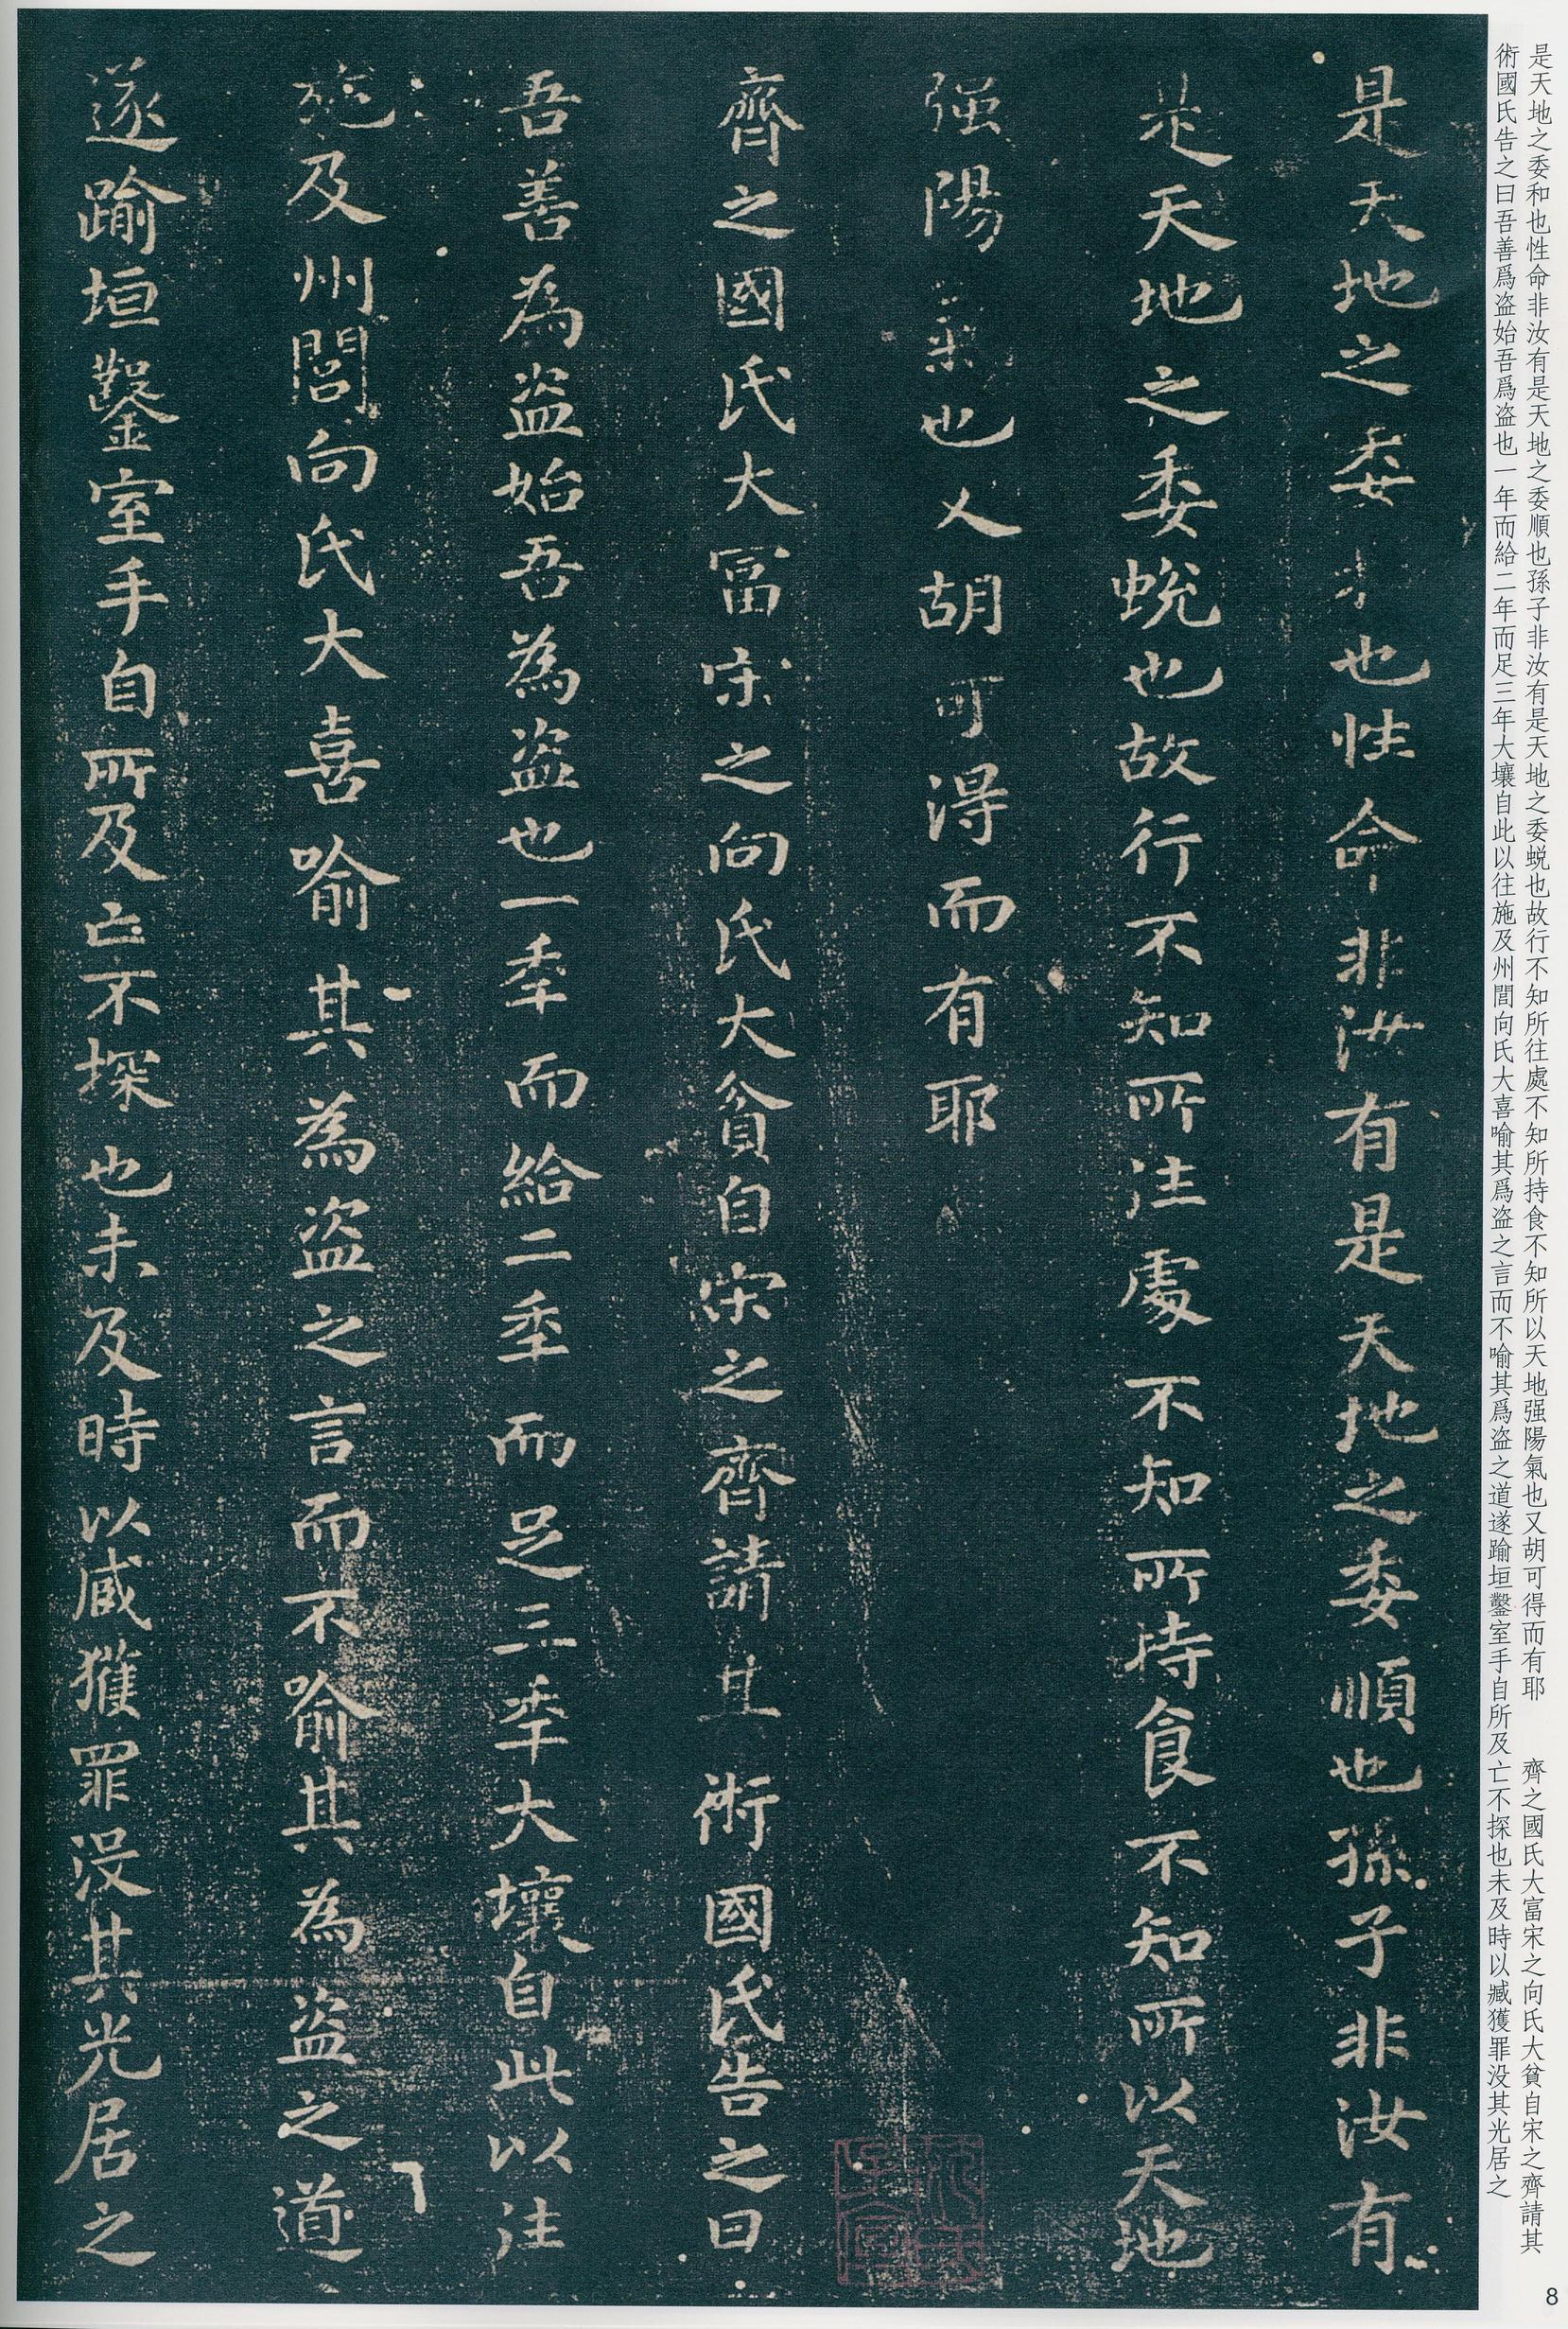 是天地之委和也性命非汝有是天地之委順也孫子非汝有是天地之委蜕也故行不知所往處不知所持食不知所以天地强陽氣也又胡可得而有耶　齊之國氏大富宋之向氏大貧自宋之齊請其
術國氏告之曰吾善爲盗始吾爲盗也一年而給二年而足三年大壤自此以往施及州閭向氏大喜喻其爲盗之言而不喻其爲盗之道遂踰垣鑿室手自所及亡不探也未及時以臧獲罪没其光居之
是天地之委也性命非汝有是天地之委順也孫子非汝有
是天地之委蜕也故行不知所往處不知所持食不知所以天地
强陽氣也又胡可得而有耶
齊之國氏大冨宋之向氏大貧自宋之齊請其術國氏告之曰
吾善為盗始吾為盗也一秊而給二秊而足三秊大壤自此以往
施及州閭向氏大喜喻其為盗之言而不喻其為盗之道
遂踰垣鑿室手自所及亡不探也未及時以臧獲罪没其光居之
8